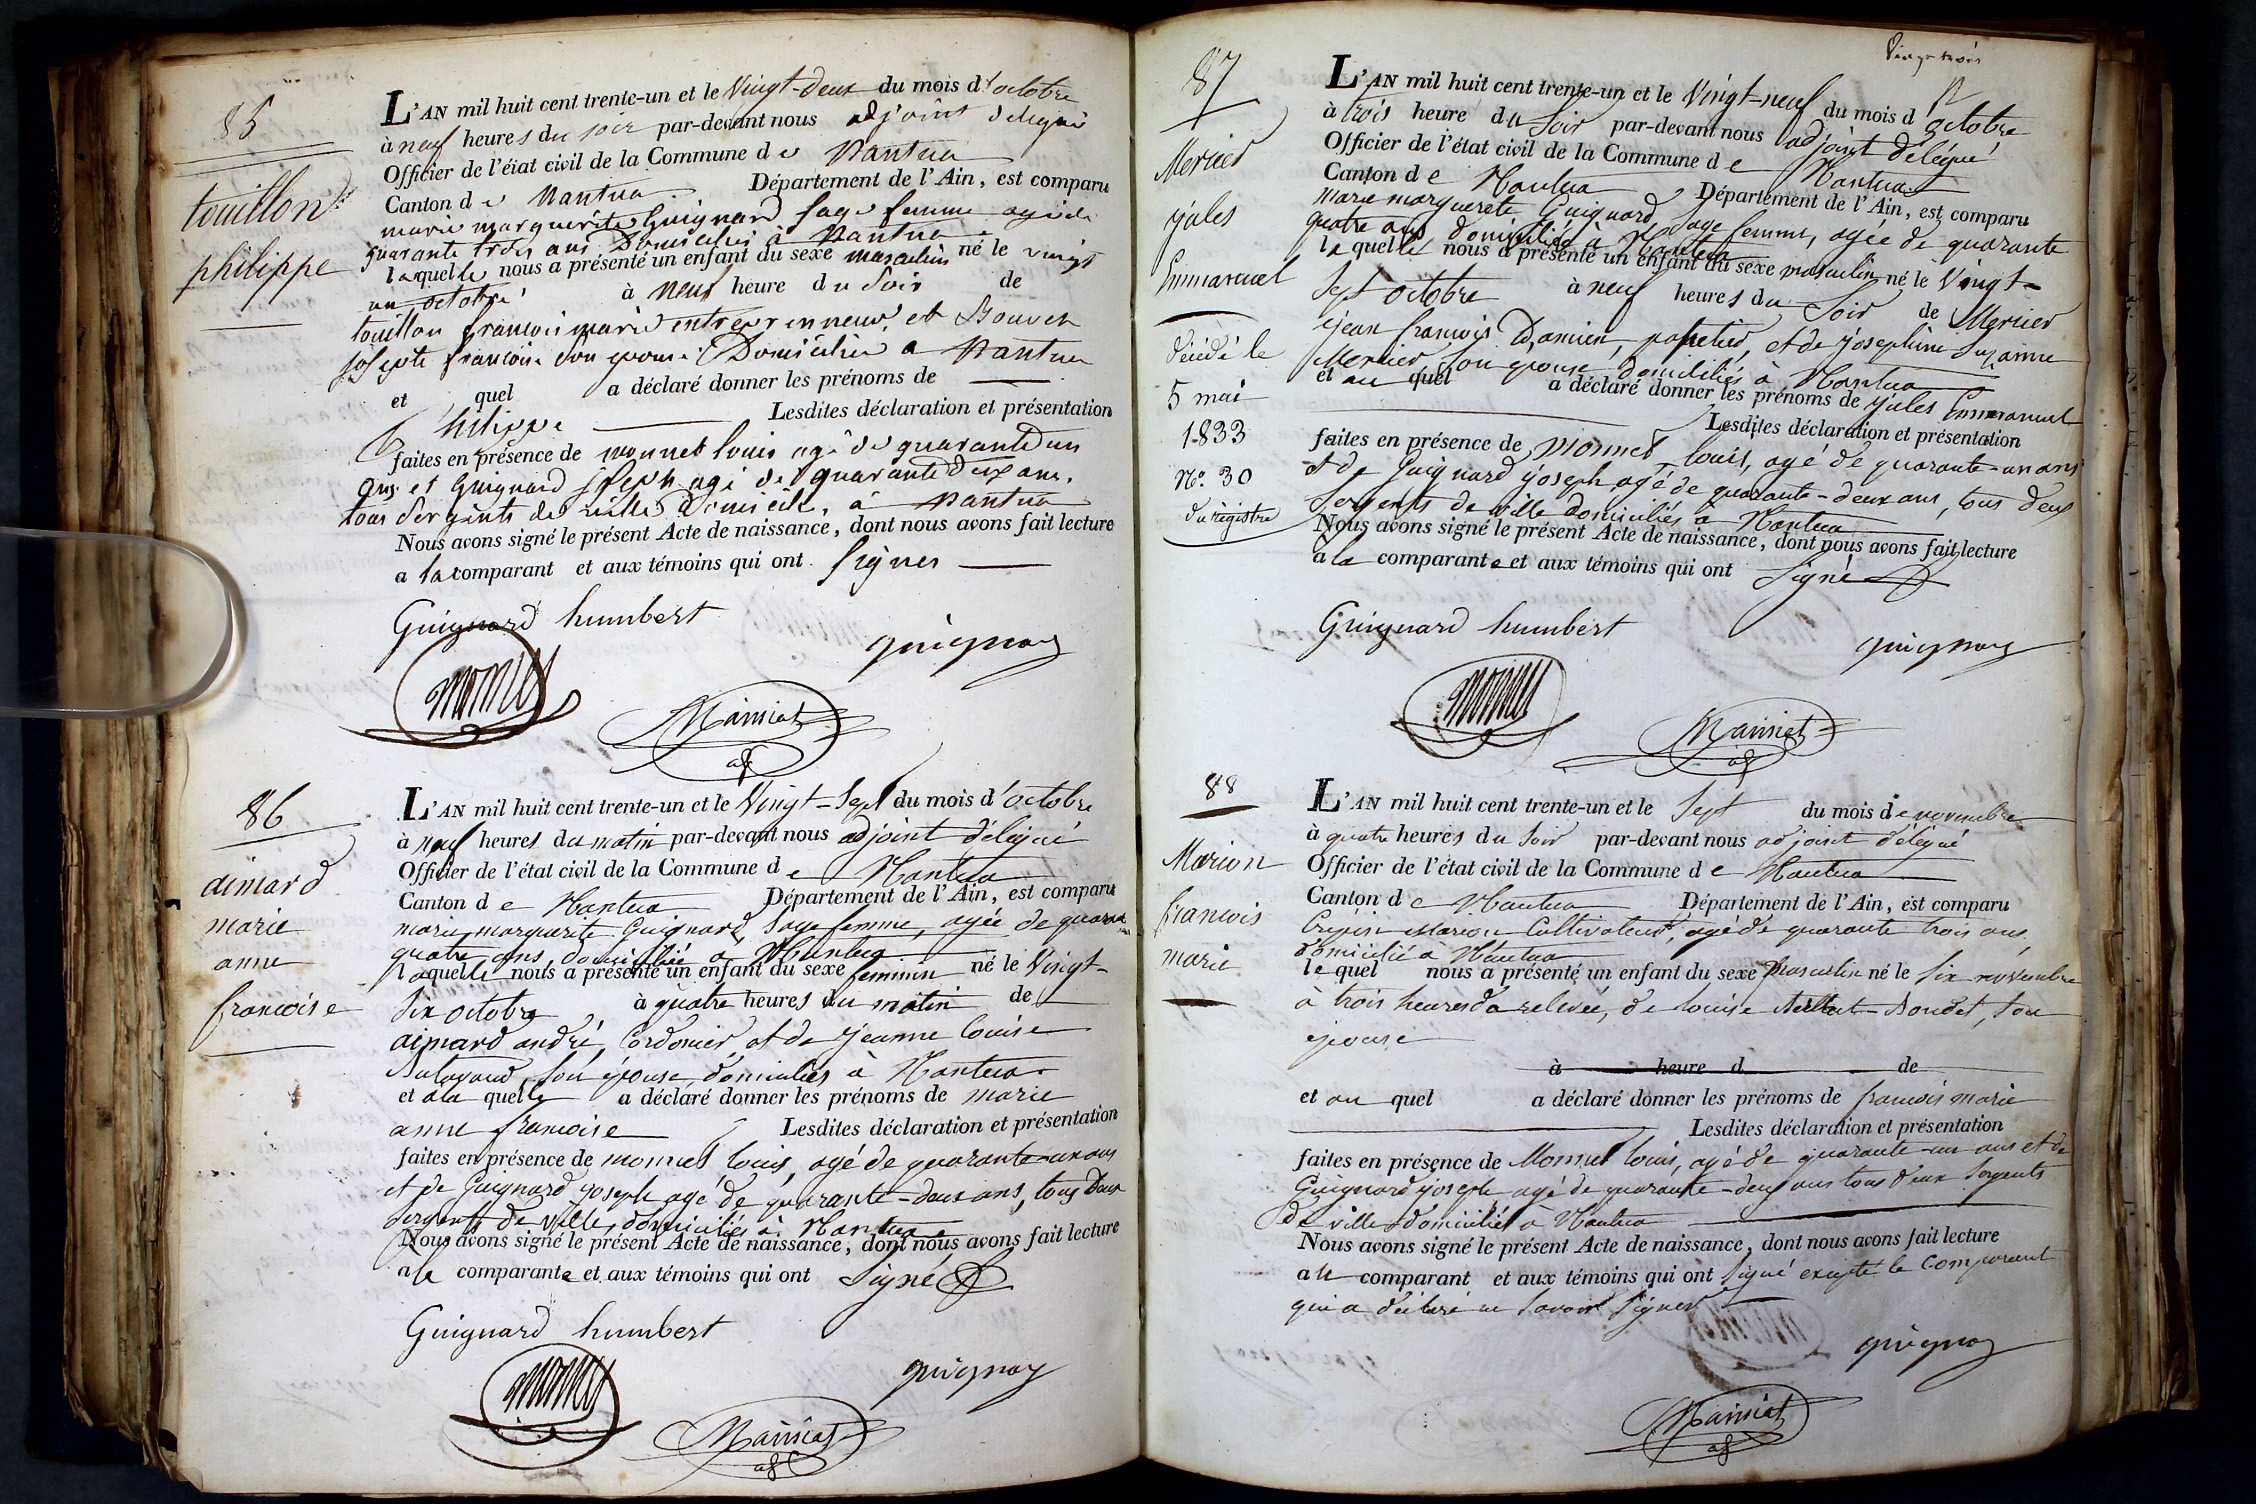 85
touillon
philippe
L'AN mil huit cent trente-un et le Vingt-deux du mois d'octobre
à neuf heures du soir par-devant nous adjoint délégué
Officier de l'état civil de la Commune de Nantua
Canton de Nantua Département de l'Ain, est comparu
marie marguerite Guignard sage femme agée de
quarante trois ans Domiciliée à Nantua
laquelle nous a présenté un enfant du sexe masculin né le vingt
un octobre à neuf heure du Soir de
touillon francois marie entreprenneur et Bouvet
josephte francoise son epouse Domiciliés a Nantua
et quel a déclaré donner les prénoms de
Philippe Lesdites déclaration et présentation
faites en présence de monnet louis agé de quarante un
ans et Guignard joseph agé de quarante deux ans,
tous Sergents de ville Domicilié, à Nantua
Nous avons signé le présent Acte de naissance, dont nous avons fait lecture
a la comparant et aux témoins qui ont Signer
Guignard humbert
guignard
monnet
Mainiat
adj
86
aimard
marie
anne
francoise
L'AN mil huit cent trente-un et le Vingt-Sept du mois d'octobre
à neuf heures du matin par-devant nous adjoint délégué
Officier de l'état civil de la Commune de Nantua
Canton de Nantua Département de l'Ain, est comparu
marie marguerite Guignard, Sage femme, agée de quarante
quatre ans, domiciliée a Nantua
laquelle nous a présenté un enfant du sexe feminin né le Vingt-
Six octobre à quatre heures du matin de
aimard andré, Cordonier, et de Jeanne louise
son épouse, domiciliés à Nantua
et a la quelle a déclaré donner les prénoms de marie
anne francoise Lesdites déclaration et présentation
faites en présence de monnet louis, agé de quarante-un ans
et de Guignard joseph agé de quarante-deux ans, tous Deux
Sergents de Ville, domiciliés à Nantua
Nous avons signé le présent Acte de naissance, dont nous avons fait lecture
a la comparante et aux témoins qui ont Signé
Guignard humbert
guignard
monnet
Mainiat
adj
Vingt trois
87
Mercier
jules
Emmanuel
décédé le
5 mai
1833
No. 30
du registre
L'AN mil huit cent trente-un et le Vingt-neuf du mois d'octobre
à trois heure du Soir par-devant nous adjoint délégué
Officier de l'état civil de la Commune de Nantua
Canton de Nantua Département de l'Ain, est comparu
Marie marguerite Guignard, Sage femme, agée de quarante
quatre ans domiciliée à Nantua
laquelle nous a présenté un enfant du sexe masculin né le Vingt-
Sept octobre à neuf heures du Soir de Mercier
jean francois Damien, papetier, et de josephine Suzanne
Mercier son épouse domiciliés à Nantua
et au quel a déclaré donner les prénoms de jules Emmanuel
Lesdites déclaration et présentation
faites en présence de Monnet louis, agé de quarante-un ans
et de Guignard joseph agé de quarante-deux ans, tous deux
Sergents de ville domiciliés à Nantua
Nous avons signé le présent Acte de naissance, dont nous avons fait lecture
a la comparante et aux témoins qui ont Signé
Guignard humbert
guignard
monnet
Mainiat
adj
88
Marion
francois
marie
L'AN mil huit cent trente-un et le Sept du mois de novembre
à quatre heures du Soir par-devant nous adjoint délégué
Officier de l'état civil de la Commune de Nantua
Canton de Nantua Département de l'Ain, est comparu
Crépin Marion Cultivateur, agé de quarante trois ans,
domicilié à Nantua
lequel nous a présenté un enfant du sexe Masculin né le Six novembre
à trois heures de relevée, de louise Boudet, son
épouse
à heure d de
et au quel a déclaré donner les prénoms de francois marie
Lesdites déclaration et présentation
faites en présence de Monnet louis, agé de quarante-un ans et de
Guignard joseph agé de quarante-deux ans tous deux Sergents
de ville domiciliés à Nantua
Nous avons signé le présent Acte de naissance, dont nous avons fait lecture
a le comparant et aux témoins qui ont Signé excepté le Comparant
qui a déclaré ne Savoir Signer
monnet
guignard
Mainiat
adj